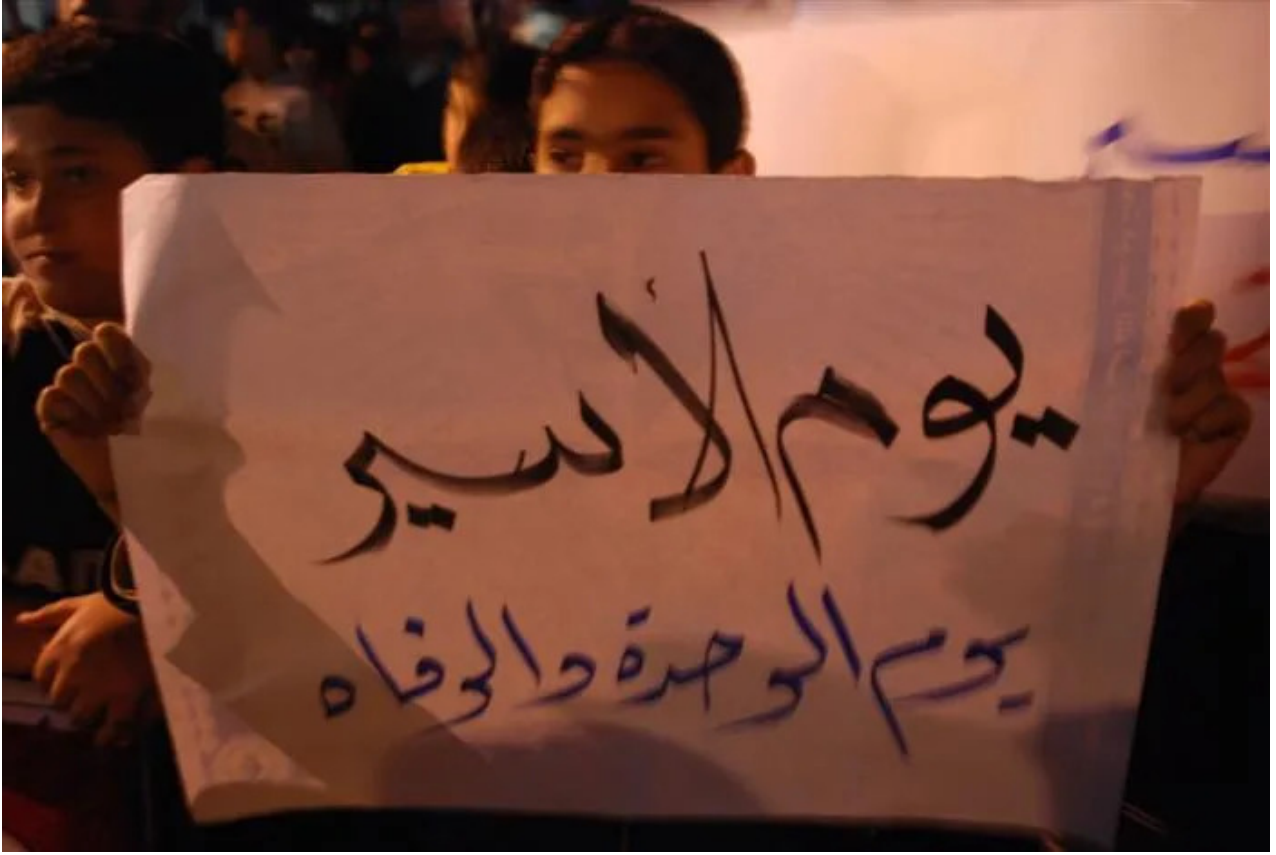 يوم الأسير
يوم الوحدة والوفاه